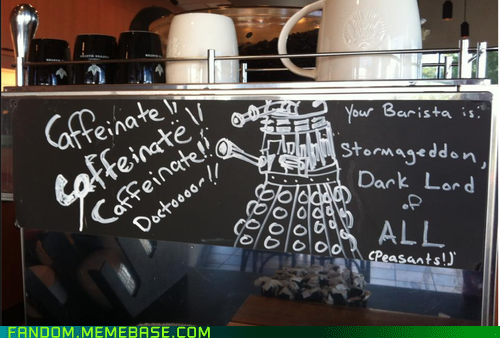 Caffeinate!!
Caffeinate!!
Caffeinate!!
Doctoooor!!
Your Barista is:
Stormageddon,
Dark Lord
of
ALL
(Peasants!)
FANDOM.MEMEBASE.COM